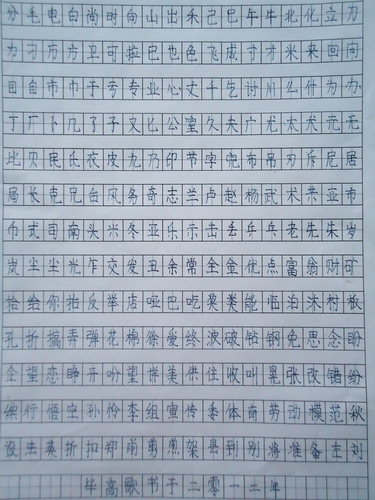 分毛电白尚时向山出禾己巴午牛北化立力
为刁方方卫可拉巴也色飞成寸才米来回问
目自市巾于考专业心丈千乞讨川么件为办
丁厂卜几了子又匕公室久夫广尤太犬元无
比贝民氏衣皮九乃印节字兜布吊刃斥尼居
局长克兄台风务奇志兰卢赵杨武术共亚布
币式司南头兴冬亚乐示击丢乒乓老先朱岁
岚尘尘光乍交发丑余常全金优点富翁财矿
拾给你抬反举店哑巴吃奖类能临泊沐村板
孔折搞弄弹花棉徐爱终波破钻钢免思念盼
全望恋睁开吩望饼美供住收叫晃张改错纷
缠行悟空孙伶李组宣传委体育劳动模范秋
设法英折扣郑前剪煎架县到别将准备左刘
毕高歌书于二零一二年